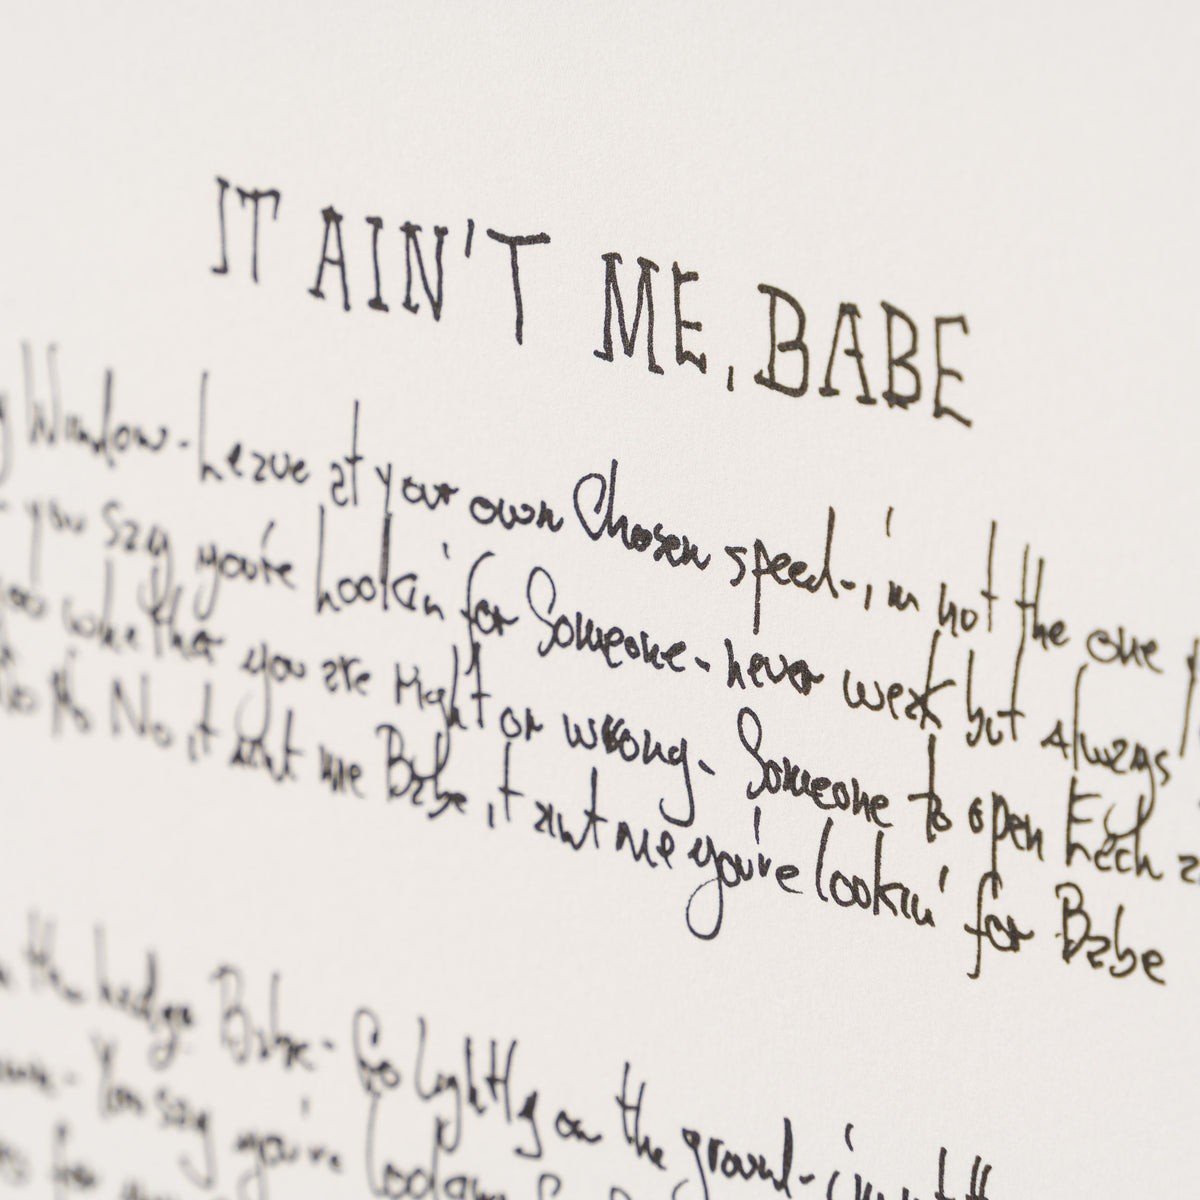 IT AIN'T ME, BABE
Window - Leave at your own Chosen speed - i'm not the one
you say you're Lookin' for Someone - never weak but Always
you whether you are Right or wrong - Someone to open Each
No No No it aint me Babe, it aint me you're lookin' for Babe
the ledge Babe - Go lightly on the ground - i'm not th
You say you're lookin
for